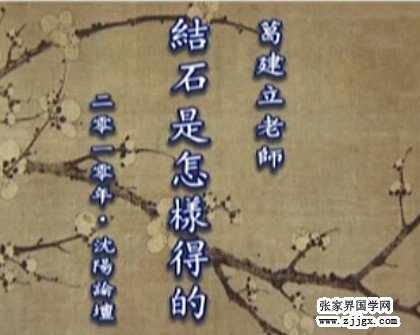 葛建立老師
結石是怎樣得的
二零一零年·沈陽論壇
张家界国学网
www.zjjgx.com